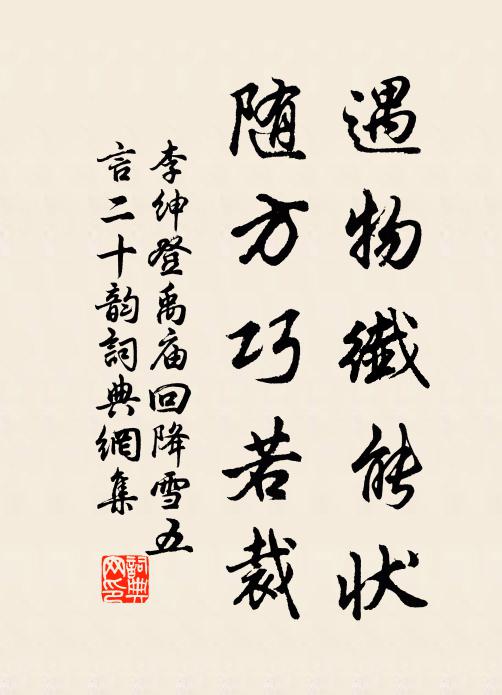 遇物纖能状
随方巧若裁
李绅登禹庙回降雪五
言二十韵詞典網集
詞典
网印